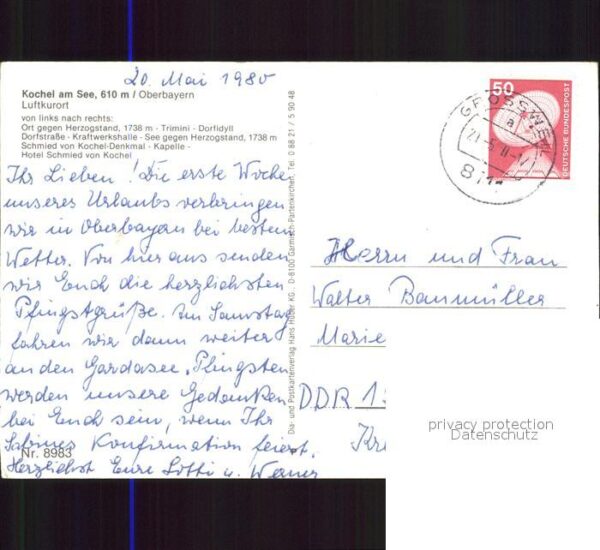 20. Mai 1980
Kochel am See, 610 m / Oberbayern
Luftkurort
von links nach rechts:
Ort gegen Herzogstand, 1738 m - Trimini - Dorfidyll
Dorfstraße - Kraftwerkshalle - See gegen Herzogstand, 1738 m
Schmied von Kochel-Denkmal - Kapelle -
Hotel Schmied von Kochel
Ihr Lieben! Die erste Woche
unseres Urlaubs verbringen
wir in Oberbayern bei bestem
Wetter. Von hier aus senden
wir Euch die herzlichsten
Pfingstgrüße. Am Samstag
fahren wir dann weiter
an den Gardasee. Pfingsten
werden unsere Gedanken
bei Euch sein, wenn Ihr
Sabines Konfirmation feiert.
Herzlichst Eure Lotti u. Werner
Nr. 8983
Dia- und Postkartenverlag Hans Huber KG, D-8100 Garmisch-Partenkirchen, Tel. 0 88 21 / 5 90 48
50
DEUTSCHE BUNDESPOST
GROSSWEIL
a
Herrn und Frau
Walter Baumüller
Marie
DDR 1
Kr
privacy protection
Datenschutz